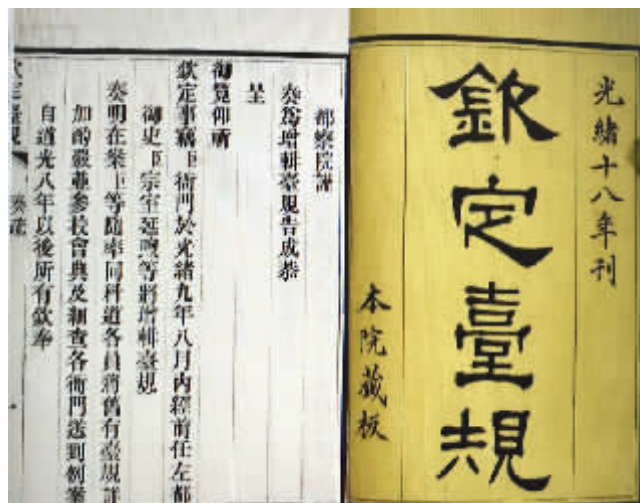 光緒十八年刊
欽定臺規
本院藏板
都察院謹
奏為增輯臺規告成恭
呈
御覽仰祈
欽定事竊臣衙門於光緒九年八月內經前任左都
御史臣宗室延煦等將增輯臺規
奏明在案臣等隨率同科道各員將舊有臺規詳
加酌覈並參校會典及細查各衙門送到例案
自道光八年以後所有欽奉
欽定臺規 奏議